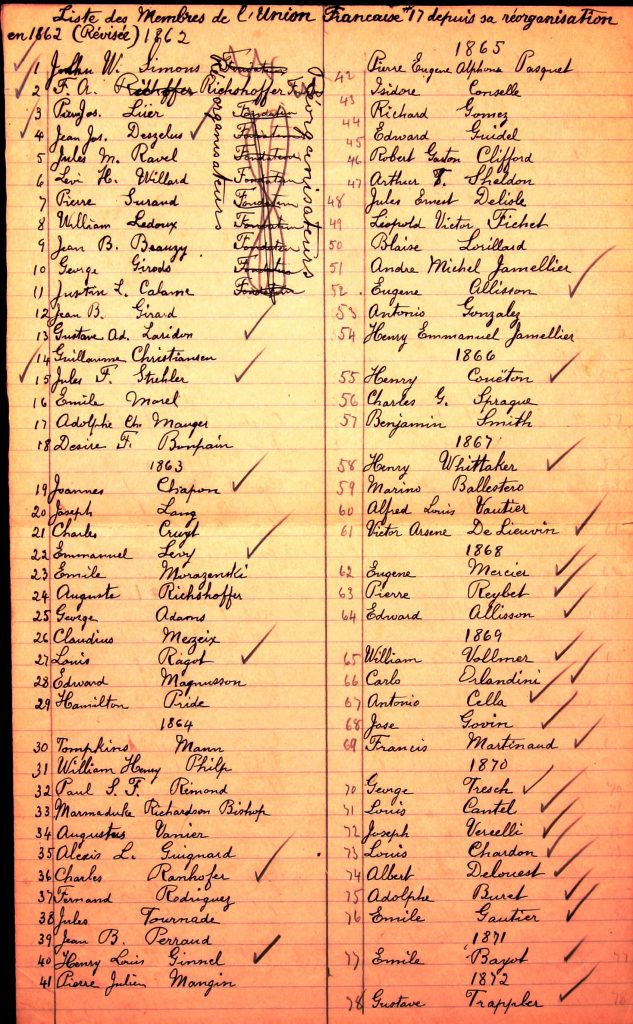 Liste des Membres de l'Union Francaise #17 depuis sa réorganisation
en 1862 (Révisée) 1862
1 John W. Simons Fondateur
2 F. A. Richshoffer Richshoffer F
3 Pier Jos. Lüer Fondateur
4 Jean Jos. Deszelus Fondateur
5 Jules M. Ravel Fondateur
6 Levi H. Willard Fondateur
7 Pierre Durand Fondateur
8 William Ledoux Fondateur
9 Jean B. Beauzy Fondateur
10 George Girods Fondateur
11 Justin L. Calame Fondateur
Réorganisateurs
Réorganisateurs
12 Jean B. Girard
13 Gustave Ad. Laridon
14 Guillaume Christiansen
15 Jules F. Strehler
16 Emile Morel
17 Adolphe Ch. Mauger
18 Desire F. Bonpain
1863
19 Joannes Chapon
20 Joseph Lang
21 Charles Cruyt
22 Emmanuel Levy
23 Emile Morazenski
24 Auguste Richshoffer
25 George Adams
26 Claudius Mezeix
27 Louis Ragot
28 Edward Magnusson
29 Hamilton Pride
1864
30 Tompkins Mann
31 William Henry Philp
32 Paul S. F. Rémond
33 Marmaduke Richardson Bishop
34 Augustus Vanier
35 Alexis L. Guignard
36 Charles Ranhofer
37 Fernand Rodriguez
38 Jules Tournade
39 Jean B. Perraud
40 Henry Louis Ginnel
41 Pierre Julien Mangin
1865
42 Pierre Eugene Alphons Pasquet
43 Isidore Conselle
44 Richard Gomez
45 Edward Guidel
46 Robert Gaston Clifford
47 Arthur T. Sheldon
48 Jules Ernest Delisle
49 Leopold Victor Fichet
50 Blaise Lorillard
51 Andre Michel Jamellier
52 Eugene Allisson
53 Antonio Gonzalez
54 Henry Emmanuel Jamellier
1866
55 Henry Couëton
56 Charles G. Sprague
57 Benjamin Smith
1867
58 Henry Whittaker
59 Marino Ballestero
60 Alfred Louis Vautier
61 Victor Arsene De Lieuvin
1868
62 Eugene Mercier
63 Pierre Reybet
64 Edward Allisson
1869
65 William Vollmer
66 Carlo Orlandini
67 Antonio Cella
68 Jose Govin
69 Francis Martinaud
1870
70 George Tresch
71 Louis Cantel
72 Joseph Vercelli
73 Louis Chardon
74 Albert Delouest
75 Adolphe Buret
76 Emile Gautier
1871
77 Emile Bayot
1872
78 Gustave Trappler